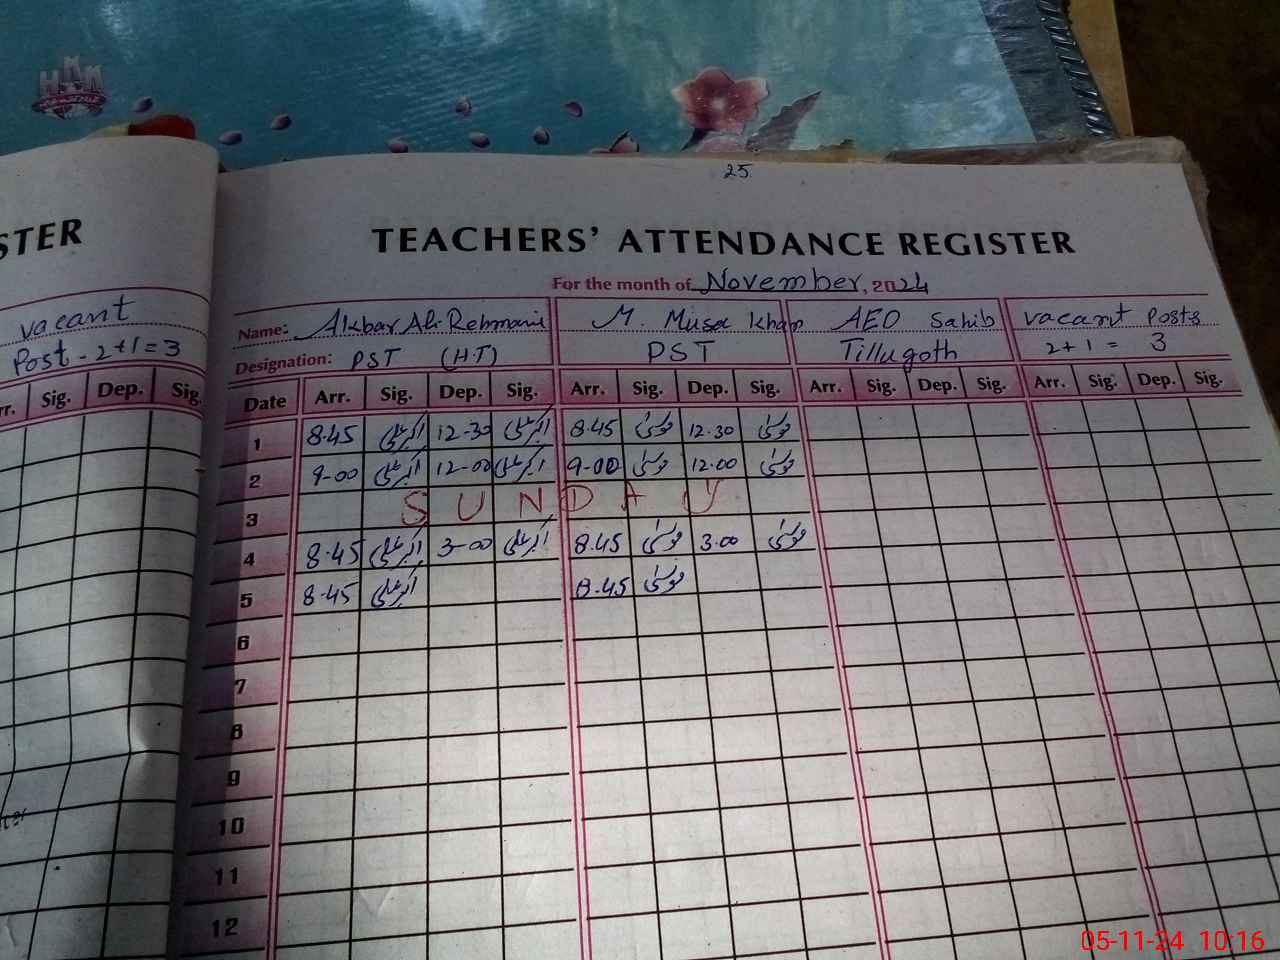 HKK
25
STER
TEACHERS' ATTENDANCE REGISTER
For the month of November, 2024
vacant
Post - 2+1=3
Name: Akbar Ali Rehmani M. Musa Khan AEO Sahib vacant Posts
Designation: PST (H.T) PST Tillugoth 2+1 = 3
rr. Sig. Dep. Sig.
Date Arr. Sig. Dep. Sig. Arr. Sig. Dep. Sig. Arr. Sig. Dep. Sig. Arr. Sig. Dep. Sig.
1 8.45 12-30 8.45 12.30
2 9-00 12-00 9-00 12.00
3 SUNDAY
4 8.45 3-00 8.45 3.00
5 8.45 8.45
6
7
8
9
10
11
12
05-11-24 10:16